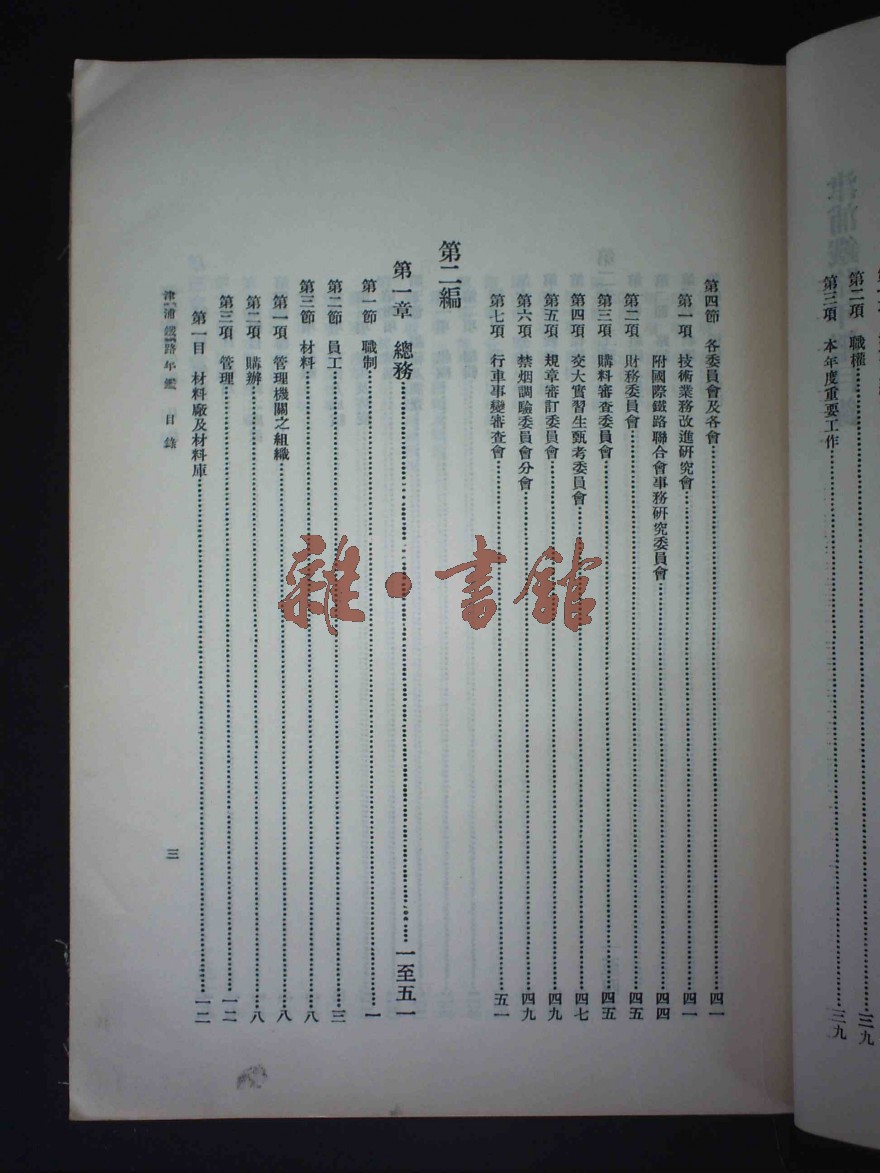 第二項　職權……三九
第三項　本年度重要工作……三九
第四節　各委員會及各會……四一
第一項　技術業務改進研究會……四一
附國際鐵路聯合會事務研究委員會……四四
第二項　財務委員會……四五
第三項　購料審查委員會……四五
第四項　交大實習生甄考委員會……四七
第五項　規章審訂委員會……四九
第六項　禁烟調驗委員會分會……四九
第七項　行車事變審查會……五一
第二編
第一章　總務……一至五一
第一節　職制……一
第二節　員工……三
第三節　材料……八
第一項　管理機關之組織……八
第二項　購辦……八
第三項　管理……一二
第一目　材料廠及材料庫……一二
津浦鐵路年鑑　目錄
三
雜·書館